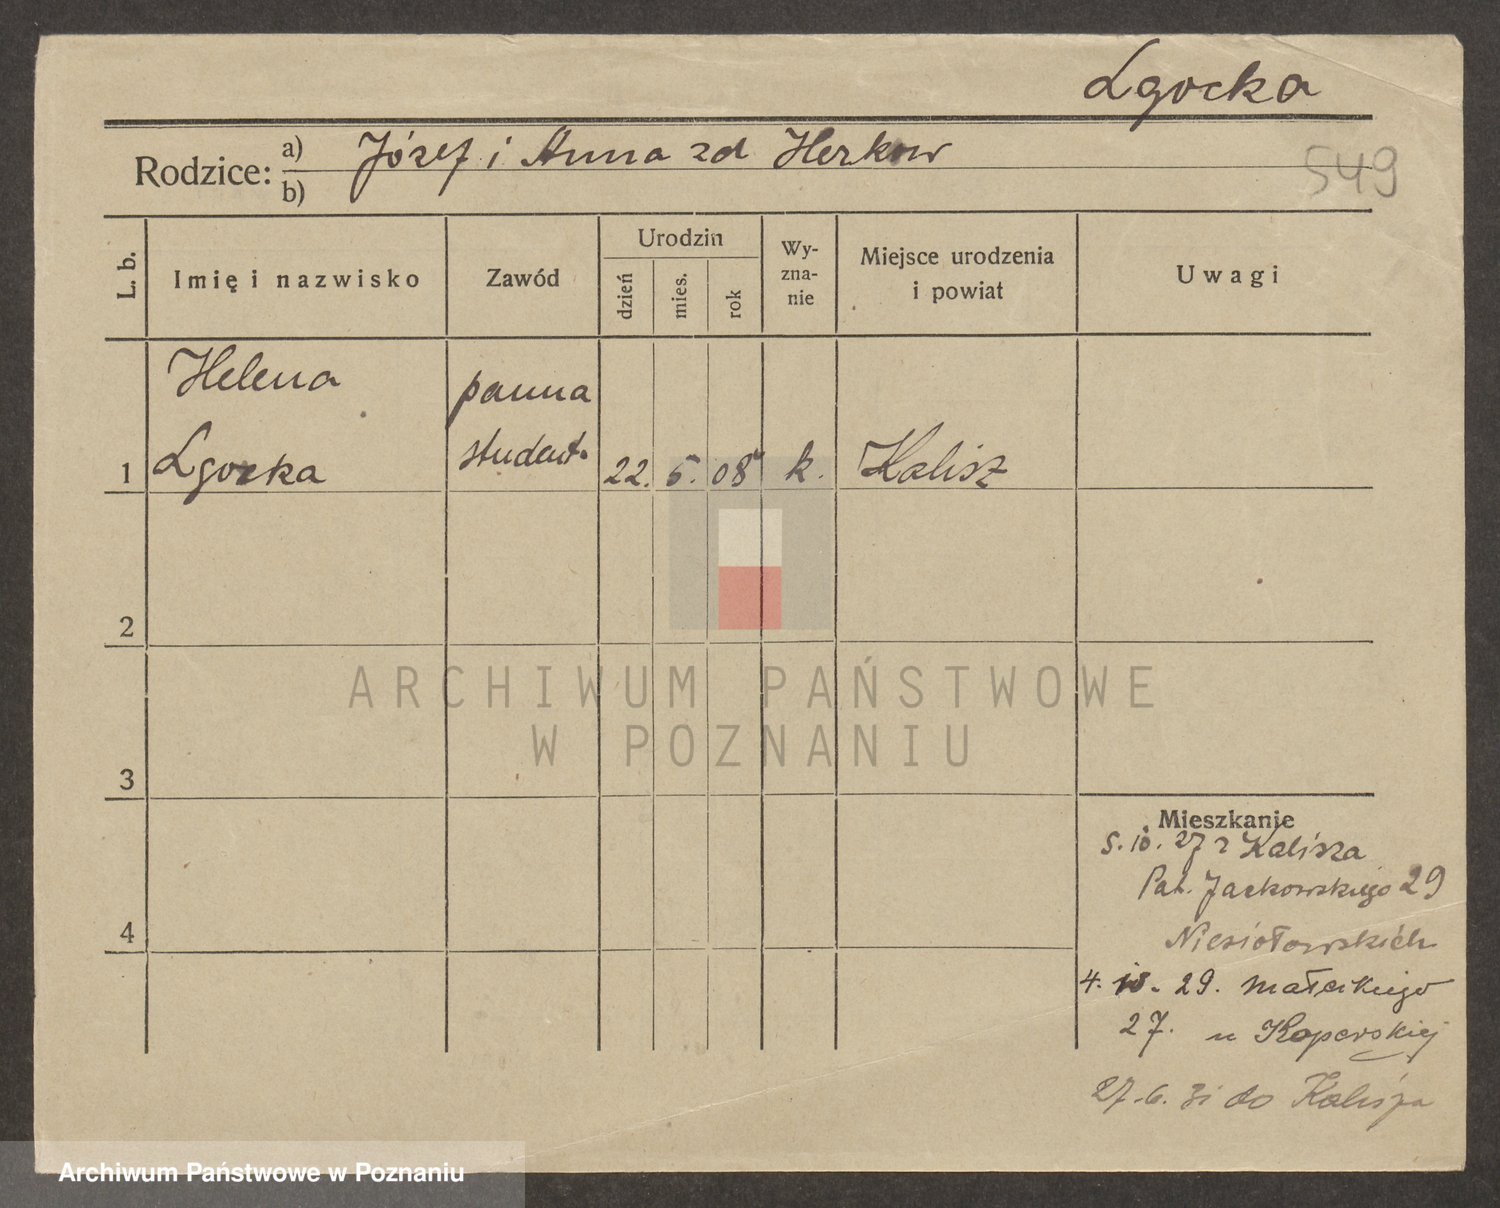 Lgocka
Rodzice: a) Józef i Anna zd Herkow
b)
549
L. b.
Imię i nazwisko
Zawód
Urodzin
dzień
mies.
rok
Wy-
zna-
nie
Miejsce urodzenia
i powiat
Uwagi
Helena
panna
1 Lgocka
student.
22. 5. 08 k. Kalisz
2
3
4
ARCHIWUM PAŃSTWOWE
W POZNANIU
Mieszkanie
5. 10. 27 z Kalisza
Pat. Jackowskiego 29
Niesiołowskich
4. 10. 29. Małeckiego
27. u Koperskiej
27. 6. 31 do Kalisza
Archiwum Państwowe w Poznaniu